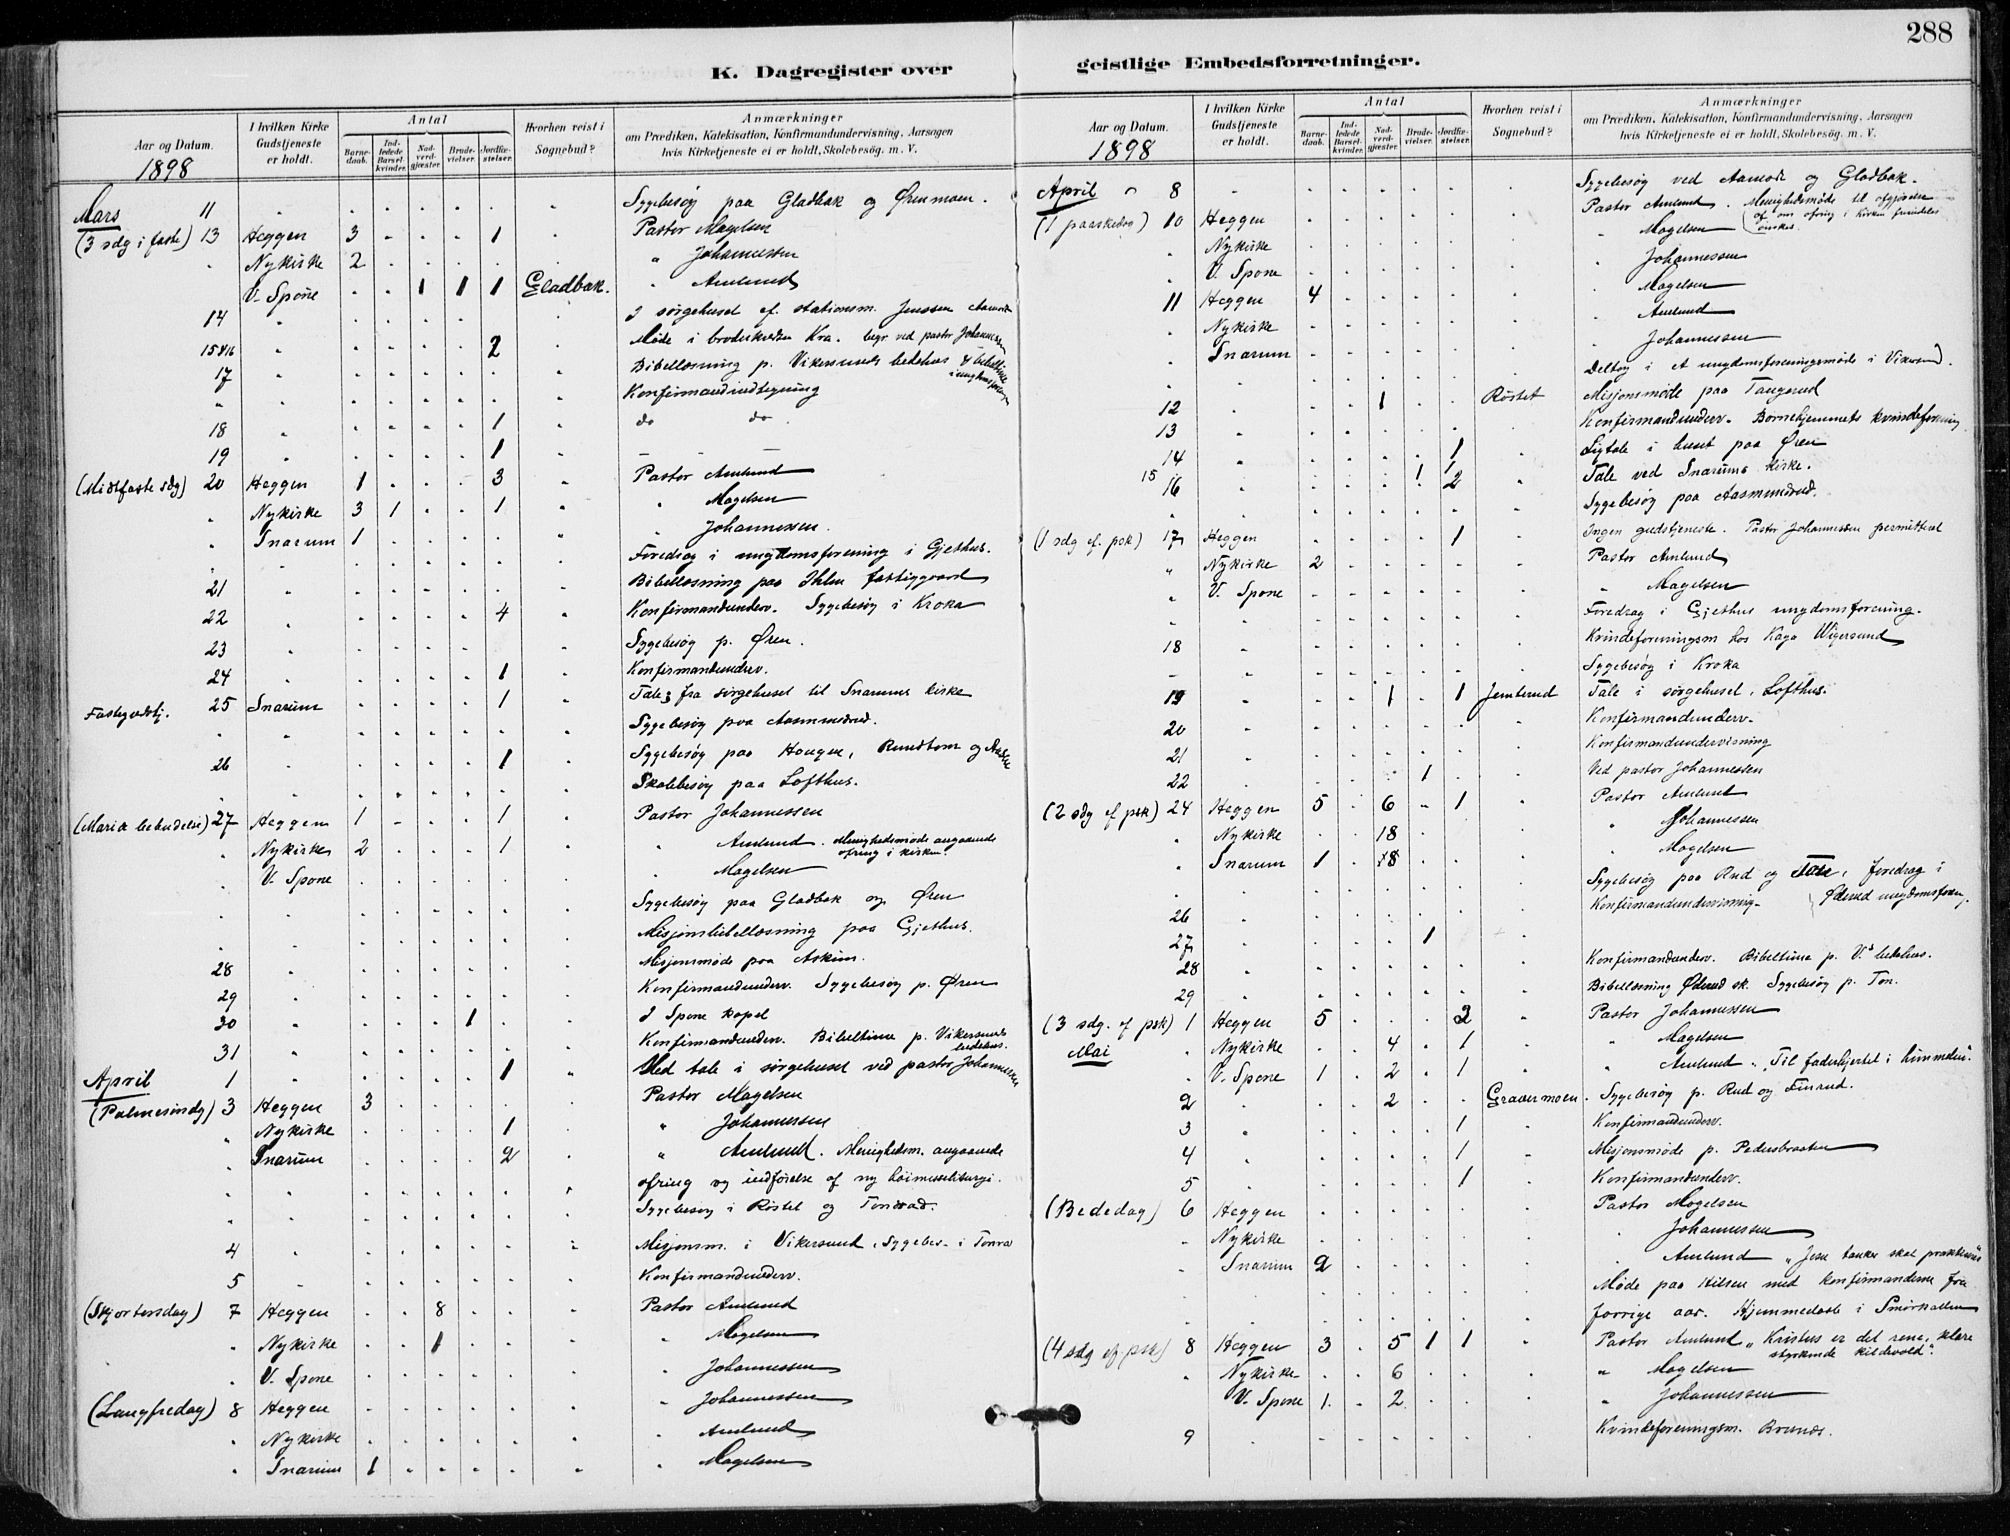 288
K. Dagregister over geistlige Embedsforretninger.
Aar og Datum. 1898
I hvilken Kirke Gudstjeneste er holdt.
Antal
Barnedaab. Indledede Barselkvinder. Nadverdgjæster. Brudevielser. Jordfæstelser.
Hvorhen reist i Sognebud?
Anmærkninger
om Prædiken, Katekisation, Konfirmandundervisning, Aarsagen
hvis Kirketjeneste ei er holdt, Skolebesøg. m. V.
Mars 11 Sygebesøg paa Gladbak og Ørenmoen.
(3 sdg i faste) 13 Heggen 3 1 Pastor Magelsen
Nykirke 2 " Johannessen
V. Spone 1 1 1 Gladbak. " Amlund
14 I sørgehuset ef. stationsm. Jenssen
15&16 2 Møde i Kra. begr ved pastor Johannessen
17 Bibellæsning p. Vikersunds bedehus
" Konfirmandindtegning
18 1 do do
19 1
(Midtfaste sdg) 20 Heggen 1 3 Pastor Amlund
Nykirke 3 1 1 " Magelsen
Snarum 1 Johannessen.
Foredrag i ungdomsforening i Gjethus.
21 Bibellæsning paa Ihlen fattiggaard
22 4 Konfirmandunderv. Sygebesøg i Kroka
23 Sygebesøg p. Øren.
24 1 Konfirmandunderv.
Fastegudstj. 25 Snarum 1 Tale fra sørgehuset til Snarums kirke
Sygebesøg paa Aasmundrud.
26 1 Sygebesøg paa Haugen, Rundtom og
Skolebesøg paa Lofthus.
(Mariæ bebudelse) 27 Heggen 1 1 Pastor Johannessen
Nykirke 2 1 Amlund. Menighedsmøde angaaende ofring i kirken.
V. Spone " Magelsen
Sygebesøg paa Gladbak og Øren
Misjonsbibellæsning paa Gjethus.
28 Misjonsmøde paa Askim.
29 Konfirmandunderv. Sygebesøg p. Øren
30 1 I Spone kapel
31 Konfirmandunderv. Bibeltime p. Vikersunds bedehus.
April 1 1 Med tale i sørgehuset ved pastor Johannessen
(Palmesøndg) 3 Heggen 3 Pastor Magelsen
Nykirke 1 " Johannessen
Snarum 2 " Amlund. Menighedsm. angaaende
ofring og indførelse af ny høimesseliturgi.
Sygebesøg i Røstet og
4 Misjonsm. i Vikersund. Sygebes. i
5 Konfirmandunderv.
(Skjærtorsdag) 7 Heggen 8 Pastor Amlund
Nykirke 1 " Magelsen
V. Spone Johannessen
(Langfredag) 8 Heggen " Johannessen
Nykirke Amlund
Snarum 1 " Magelsen
Aar og Datum. 1898
I hvilken Kirke Gudstjeneste er holdt.
Antal
Barnedaab. Indledede Barselkvinder. Nadverdgjæster. Brudevielser. Jordfæstelser.
Hvorhen reist i Sognebud?
Anmærkninger
om Prædiken, Katekisation, Konfirmandundervisning, Aarsagen
hvis Kirketjeneste ei er holdt, Skolebesøg. m. V.
April 8 Sygebesøg ved Aamodt og Gladbak.
(1 paaskedag) 10 Heggen Pastor Amlund. Menighedsmøde til afgjørelse af om ofring i kirken fremdeles ønskes.
Nykirke " Magelsen
V. Spone Johannessen
11 Heggen 4 Magelsen
Nykirke Amlund
Snarum Johannessen
Deltog i et ungdomsforeningsmøde i Vikersund.
12 1 Røstet Misjonsmøde paa Tangerud
13 Konfirmandunderv. Børnehjemmets kvindeforening
14 1 Ligtale i huset paa Øren
15 1 1 Tale ved Snarums kirke.
16 2
Sygebesøg paa Aasmundrud.
(1 sdg ef. psk) 17 Heggen 1 Ingen gudstjeneste. Pastor Johannessen permitteret
Nykirke 2 Pastor Amlund
V. Spone " Magelsen
Foredrag i Gjethus ungdomsforening.
18 Kvindeforeningsm hos Kaya
Sygebesøg i Kroka
19 1 1 Jemterud Tale i sørgehuset, Lofthus.
20 Konfirmandunderv.
21 Konfirmandundervisning
22 1 Ved pastor Johannessen
(2 sdg ef psk) 24 Heggen 5 6 1 Pastor Amlund
Nykirke 18 " Johannessen
Snarum 1 8 " Magelsen
Sygebesøg paa Rud og foredrag i Øderud ungdomsforen.
26 Konfirmandundervisning.
27 1
28 Konfirmandunderv. Bibeltime p. V.s bedehus.
29 Bibellæsning Øderud sk. Sygebesøg p. Ton.
(3 sdg. ef psk) 1 Heggen 5 2 Pastor Johannessen
Mai Nykirke 4 1 " Magelsen
V. Spone 1 2 1 " Amlund. "Til faderhjertet i himmelen".
2 2 Gravermoen Sygebesøg p. Rud og Finrud.
3 1 Konfirmandunderv.
4 1 Misjonsmøde p. Pedersbraaten
5 1 Konfirmandunderv.
(Bededag) 6 Heggen Pastor Magelsen
Nykirke Johannessen
Snarum 2 Amlund "Jesu tanker skal
Møde paa Hilsen med konfirmanderne fra
forrige aar. Hjemmedaab i
(4 sdg ef. psk) 8 Heggen 3 5 1 1 Pastor Amlund "Kristus er det rene, klare styrkende kildevæld".
Nykirke 6 " Magelsen
V. Spone 1 2 " Johannessen
9 Kvindeforeningsm. Brunes.